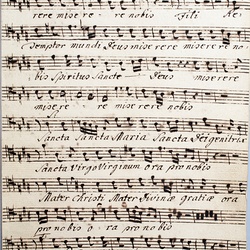 rere misere - re nobis Fili Re,
demptor mundi Deus miserere miserere no,
bis Spiritus Sancte - Deus miserere
misere - re miserere nobis
Sancta Sancta Maria Sancta Dei genitrix
Sancta Virgo Virginum ora pro nobis
Mater Christi Mater Divinæ gratiæ ora
pro nobis o - ra pro nobis